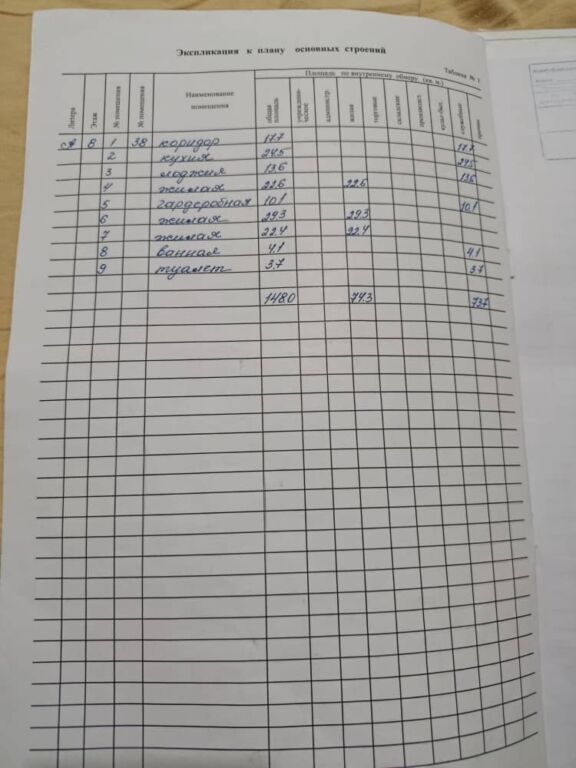 Экспликация к плану основных строений
Таблица № 1
Площадь по внутреннему обмеру (кв. м.)
Литера Этаж № помещения № помещения Наименование помещения общая площадь учрежден-ческое администр. жилая торговые складские производст. культ-быт. служебные прочие
А 8 1 38 коридор 17.7 17.7
2 кухня 24.5 24.5
3 лоджия 13.6 13.6
4 жилая 22.6 22.6
5 гардеробная 10.1 10.1
6 жилая 29.3 29.3
7 жилая 22.4 22.4
8 ванная 4.1 4.1
9 туалет 3.7 3.7
148.0 74.3 73.7